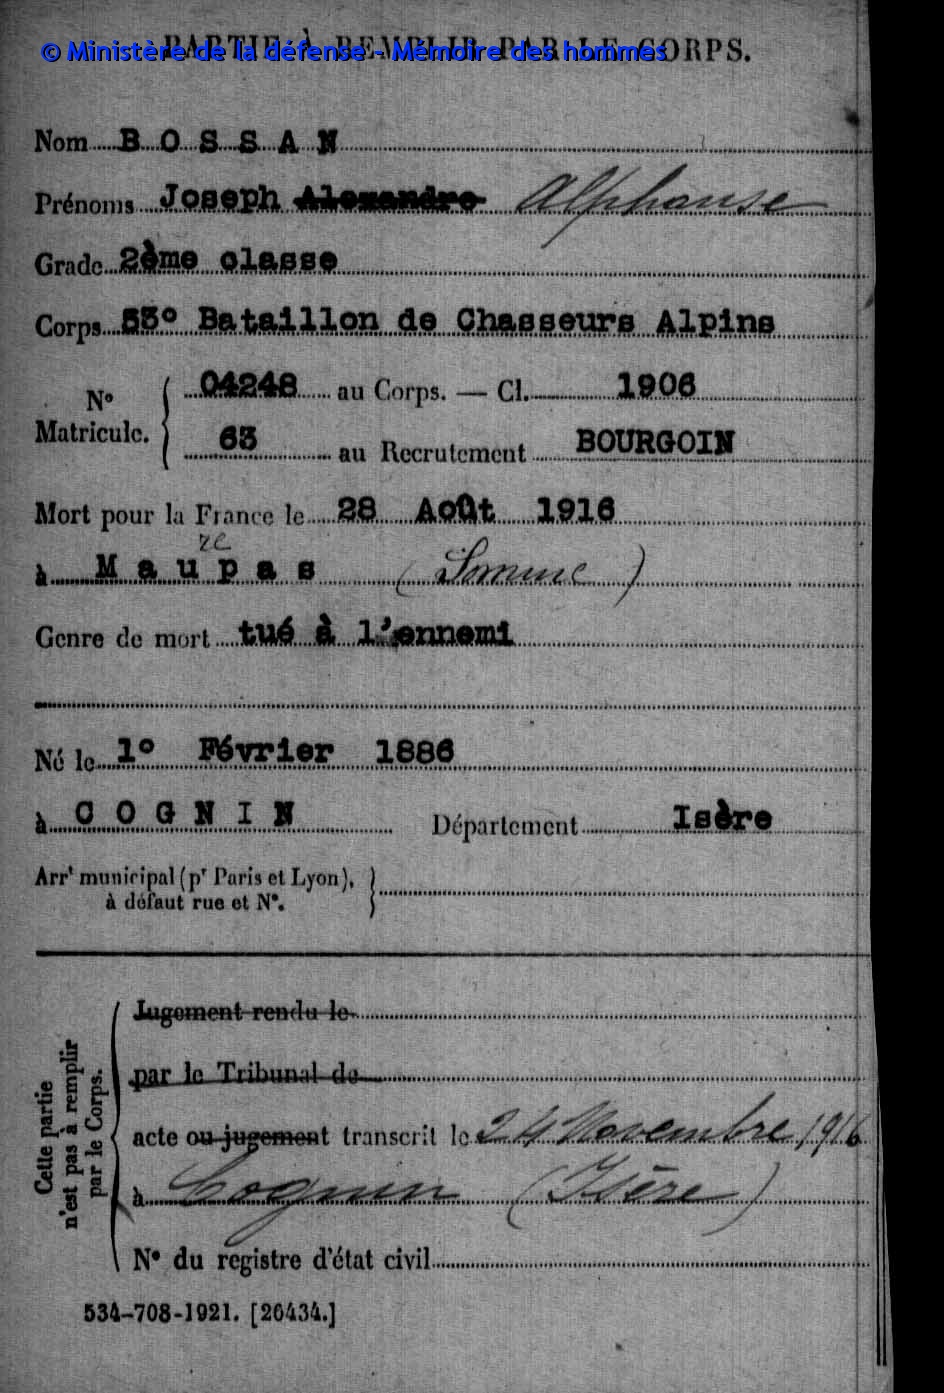 PARTIE À REMPLIR PAR LE CORPS.
© Ministère de la défense - Mémoire des hommes
Nom BOSSAN
Prénoms Joseph Alexandre Alphonse
Grade 2ème classe
Corps 53° Bataillon de Chasseurs Alpins
N° Matricule. { 04248 au Corps. — Cl. 1906
63 au Recrutement BOURGOIN
Mort pour la France le 28 Août 1916
re
à Maupas (Somme)
Genre de mort tué à l'ennemi
Né le 1° Février 1886
à COGNIN Département Isère
Arrt municipal (pr Paris et Lyon), }
à défaut rue et N°.
Cette partie
n'est pas à remplir
par le Corps.
Jugement rendu le
par le Tribunal de
acte ou jugement transcrit le 24 Novembre 1916
à Cognin (Isère)
N° du registre d'état civil
534-708-1921. [26434.]